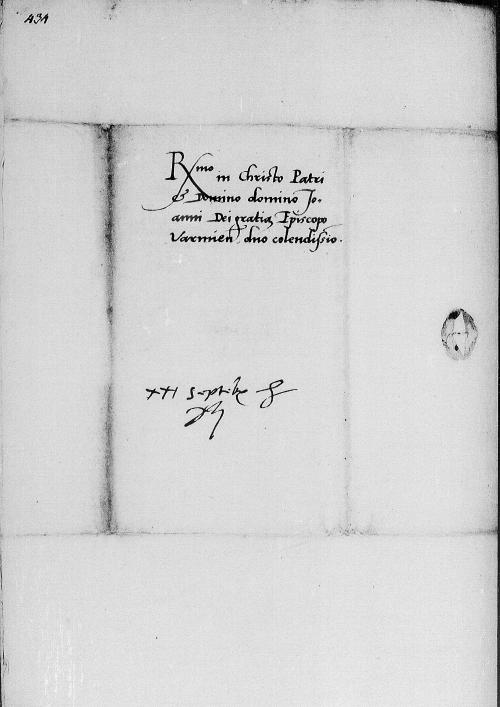 434
Rxmo in Christo Patri
& Domino domino Jo-
anni Dei gratia Episcopo
Varmien dno colendissio.
XXI Septibr